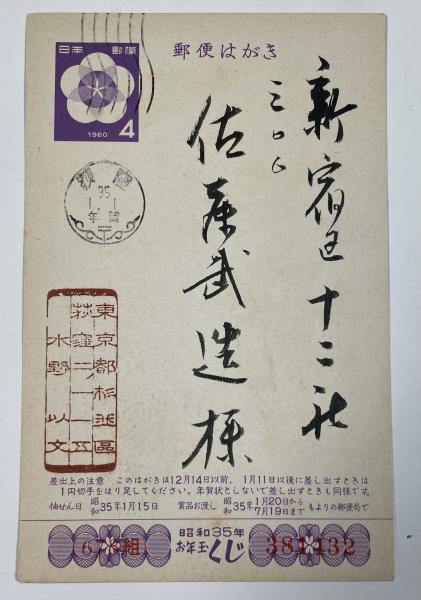 日本郵便
1960
4
郵便はがき
35
1.1
年賀
新宿区十二社
三〇六
佐藤武造様
東京都杉並區
荻窪二ノ一一五
水野以文
差出上の注意 このはがきは12月14日以前、1月11日以後に差し出すときは
1円切手をはり足してください。年賀状としないで差し出すときも同様です。
抽せん日 昭和35年1月15日 賞品お渡し 昭和35年1月20日から7月19日まで もよりの郵便局で
昭和35年
お年玉くじ
組
381432